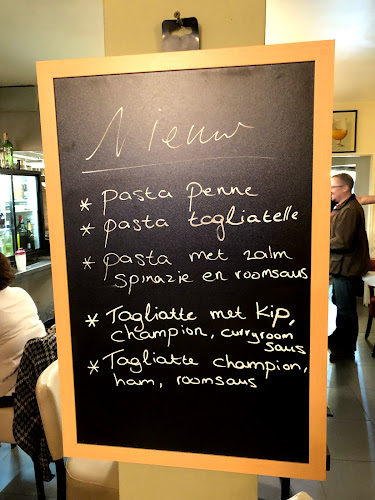 Nieuw
* pasta penne
* pasta tagliatelle
* pasta met zalm
spinazie en roomsaus
* Tagliatte met kip,
champion, curryroom
saus
* Tagliatte champion,
ham, roomsaus